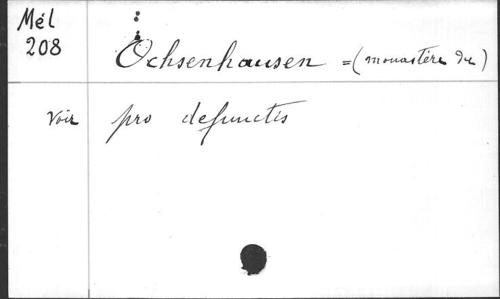 Mél
208
Ochsenhausen = (monastère de)
Voir pro defunctis